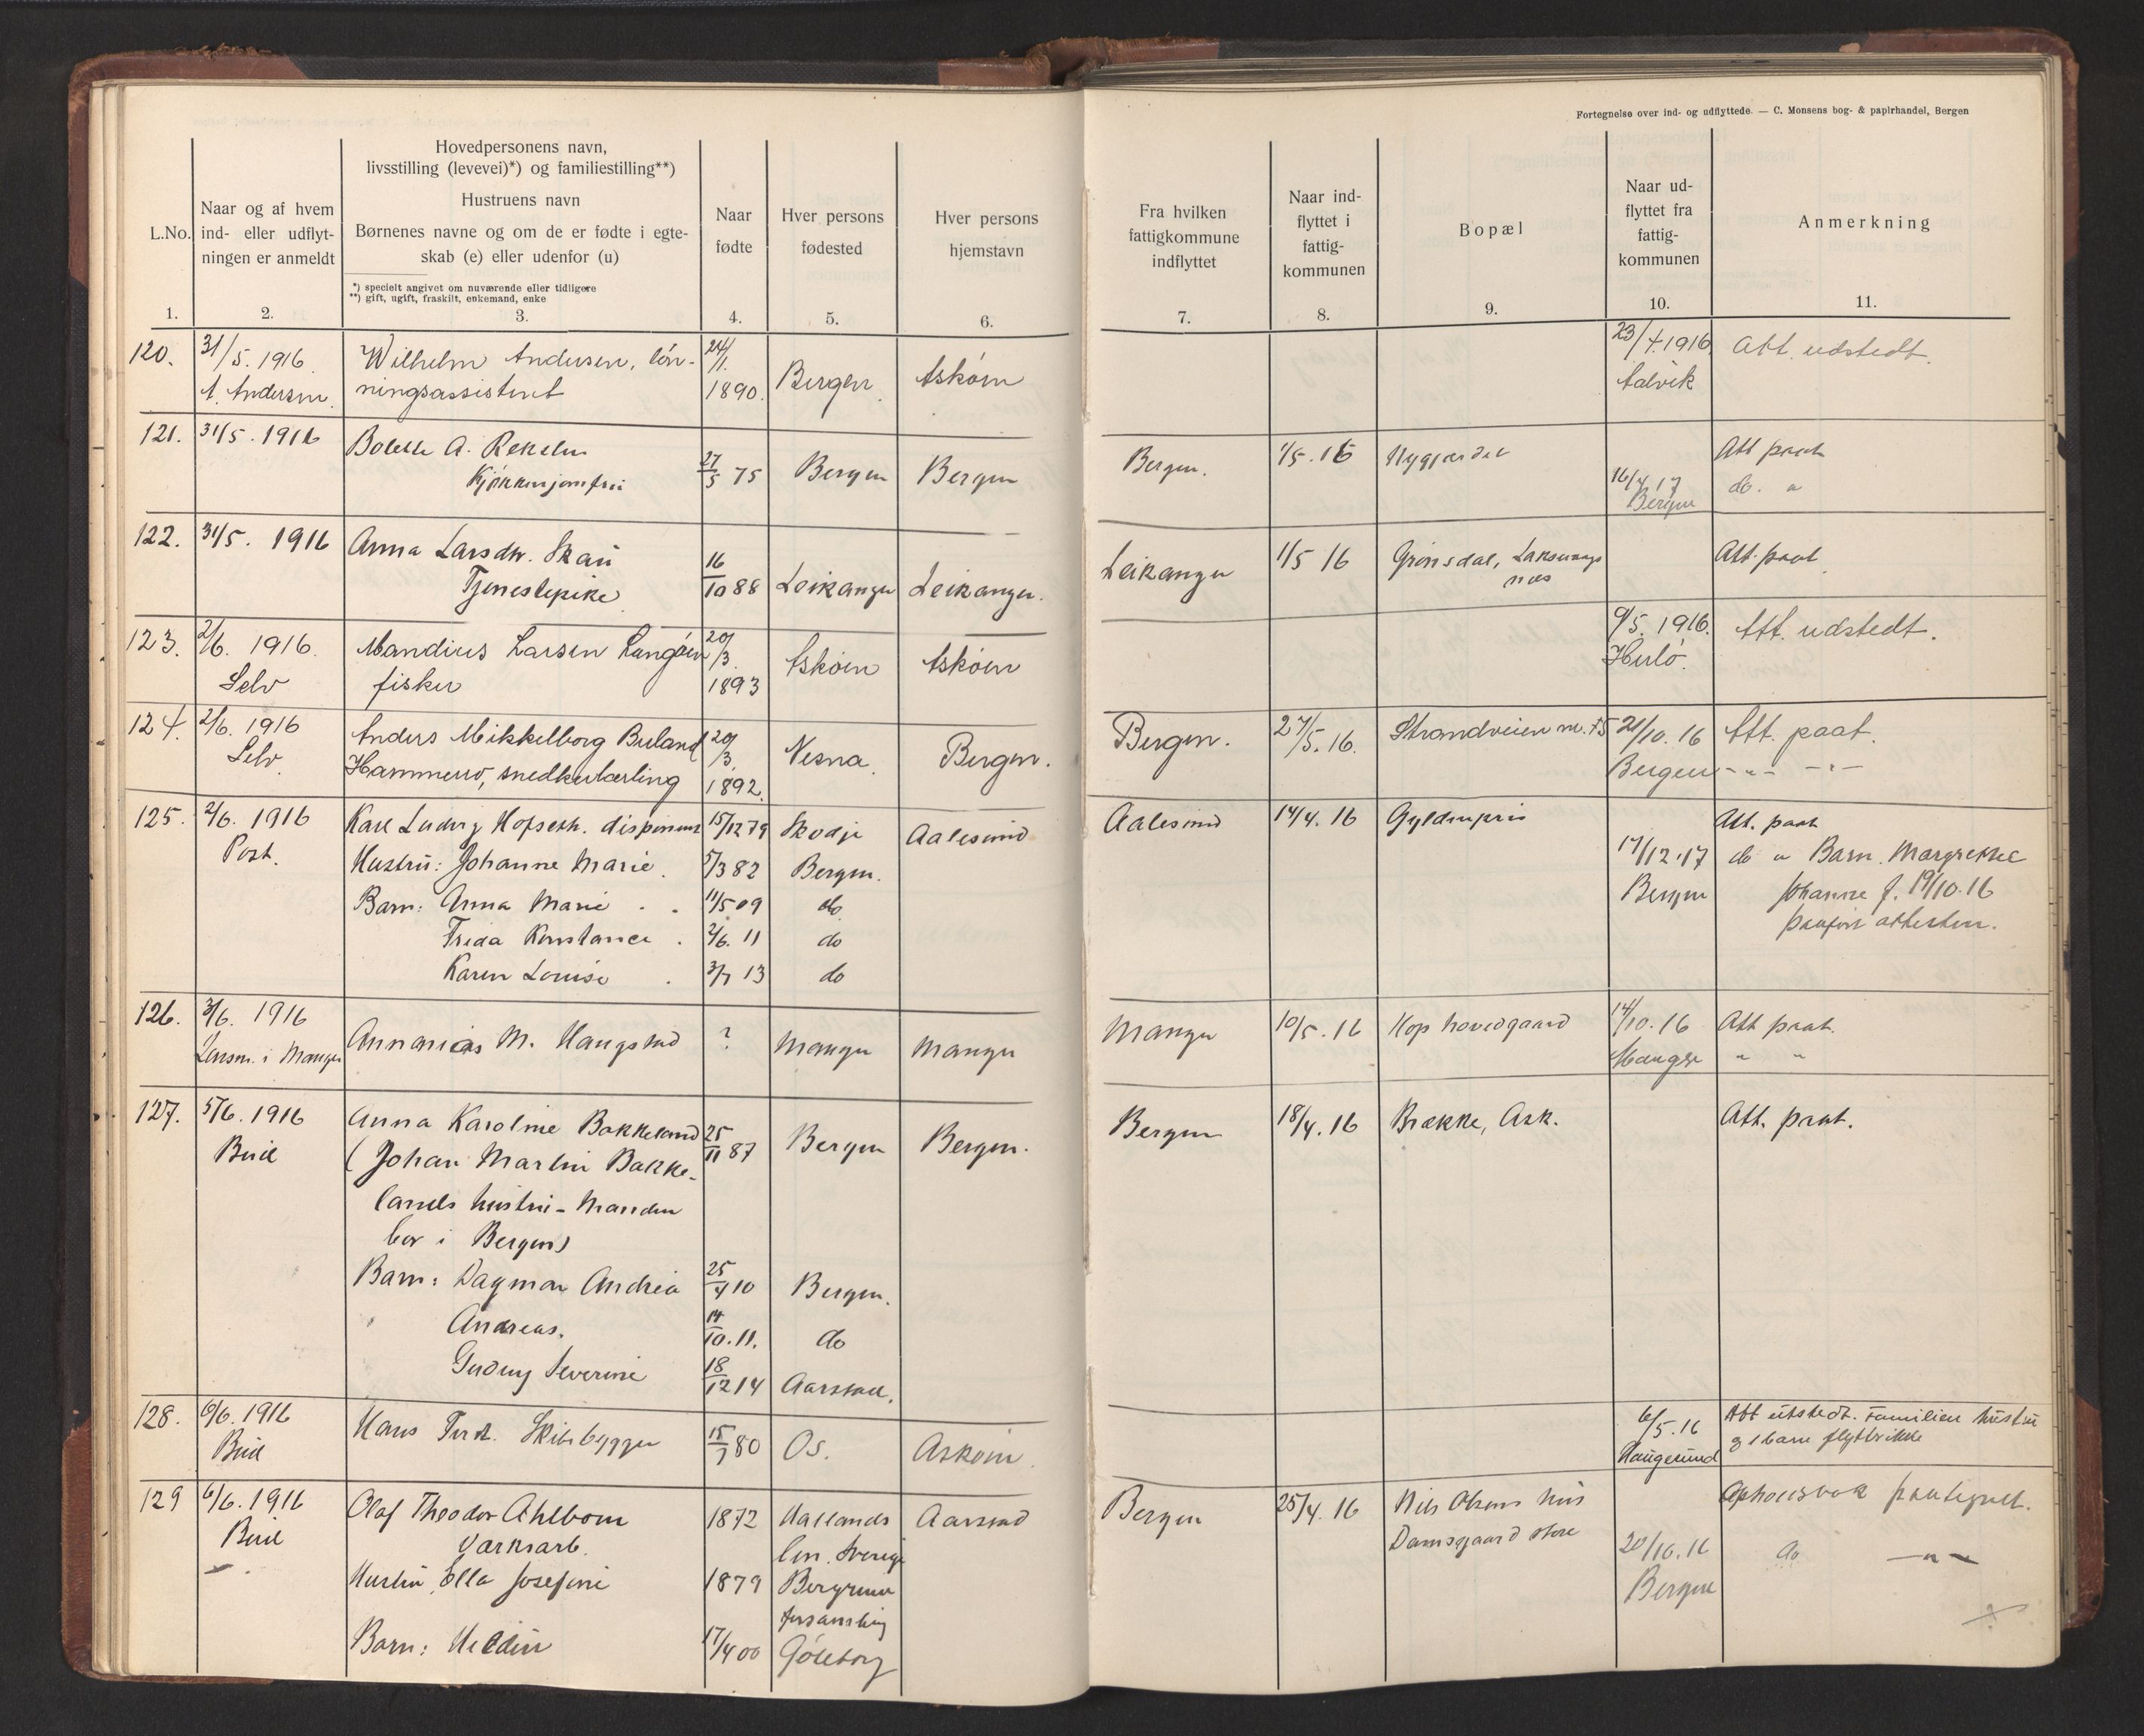 Fortegnelse over ind- og udflyttede. — C. Monsens bog- & papirhandel, Bergen
L.No.
1.
Naar og af hvem
ind- eller udflyt-
ningen er anmeldt
2.
Hovedpersonens navn,
livsstilling (levevei)*) og familiestilling**)
Hustruens navn
Børnenes navne og om de er fødte i egte-
skab (e) eller udenfor (u)
*) specielt angivet om nuværende eller tidligere
**) gift, ugift, fraskilt, enkemand, enke
3.
Naar
fødte
4.
Hver persons
fødested
5.
Hver persons
hjemstavn
6.
Fra hvilken
fattigkommune
indflyttet
7.
Naar ind-
flyttet i
fattig-
kommunen
8.
Bopæl
9.
Naar ud-
flyttet fra
fattig-
kommunen
10.
Anmerkning
11.
120. 31/5. 1916. Wilhelm Andersen, løn- 24/1. 23/4. 1916. Att. udstedt.
A. Andersen ningsassistent 1890. Bergen. Askøen Aalvik
121. 31/5. 1916 Bolette A.
Kjøkkenjomfru 27/5 75 Bergen Bergen Bergen. 1/5. 16 Nygjærdet Att paat
16/4 17 do. "
Bergen
122. 31/5. 1916 Anna Larsdtr. Skau
Tjenestepike 16/10 88 Leikanger Leikanger. Leikanger 1/5 16 Grønsdal, Laksevaags Att. paat.
nes
123. 2/6. 1916. Mandius Larsen Langøen 20/3. 9/5. 1916. Att. udstedt.
Selv fisker 1893 Askøen Askøen Herlø.
124. 2/6. 1916 Anders Mikkelborg Buland 20/3. Bergen. 27/5. 16. Strandveien nr. 75 21/10. 16 Att. paat.
Selv. Hammerø, snedkerlærling 1892. Nesna. Bergen. Bergen -"- -"-
125. 2/6. 1916 Karl Ludvig Hofseth. disponent 15/12 79 Skodje Aalesund Aalesund 14/4. 16 Gyldenpris Att. paat
Post. Hustru: Johanne Marie. 5/3 82 Bergen. 17/12. 17 do " Barn. Margrethe
Barn: Anna Marie 11/5 09 do Bergen Johanne f. 19/10. 16
Frida Konstance. 2/6. 11 do paaført attesten.
Karen Louise. 3/7 13 do
126. 3/6. 1916 Annanias M. Haugstad ? Manger Manger Manger 10/5. 16 Hop hovedgaard 14/10. 16 Att paat.
Lensm. i Manger Manger " "
127. 5/6. 1916 Anna Karoline Bakkeland 25/11 87 Bergen Bergen. Bergen 18/4. 16 Brække, Ask. Att. paat.
Bud (Johan Martin Bakke-
lands hustru - Manden
bor i Bergen)
Barn: Dagmar Andrea 25/4 10 Bergen.
Andreas. 14/10. 11. do
Gudny Severine 18/12 14 Aarstad.
128. 6/6. 1916 Hans Ferd. Skibsbygger 15/7 80 Os. Askøen. 6/5. 16 Att utstedt. Familien hustru
Bud Haugesund og 1 barn flytter ikke
129 6/6. 1916 Olaf Theodor Ahlbom 1872 Hallands Aarstad Bergen 25/4. 16 Nils Olsens hus Opholdsbok paategnet.
Bud Værksarb. len. Sverige Damsgaard store 20/10. 16 do -"-
Hustru Ella Josefine 1879 Bergerum Bergen
forsamling
Barn: Hedin 17/4 00 Gøteborg